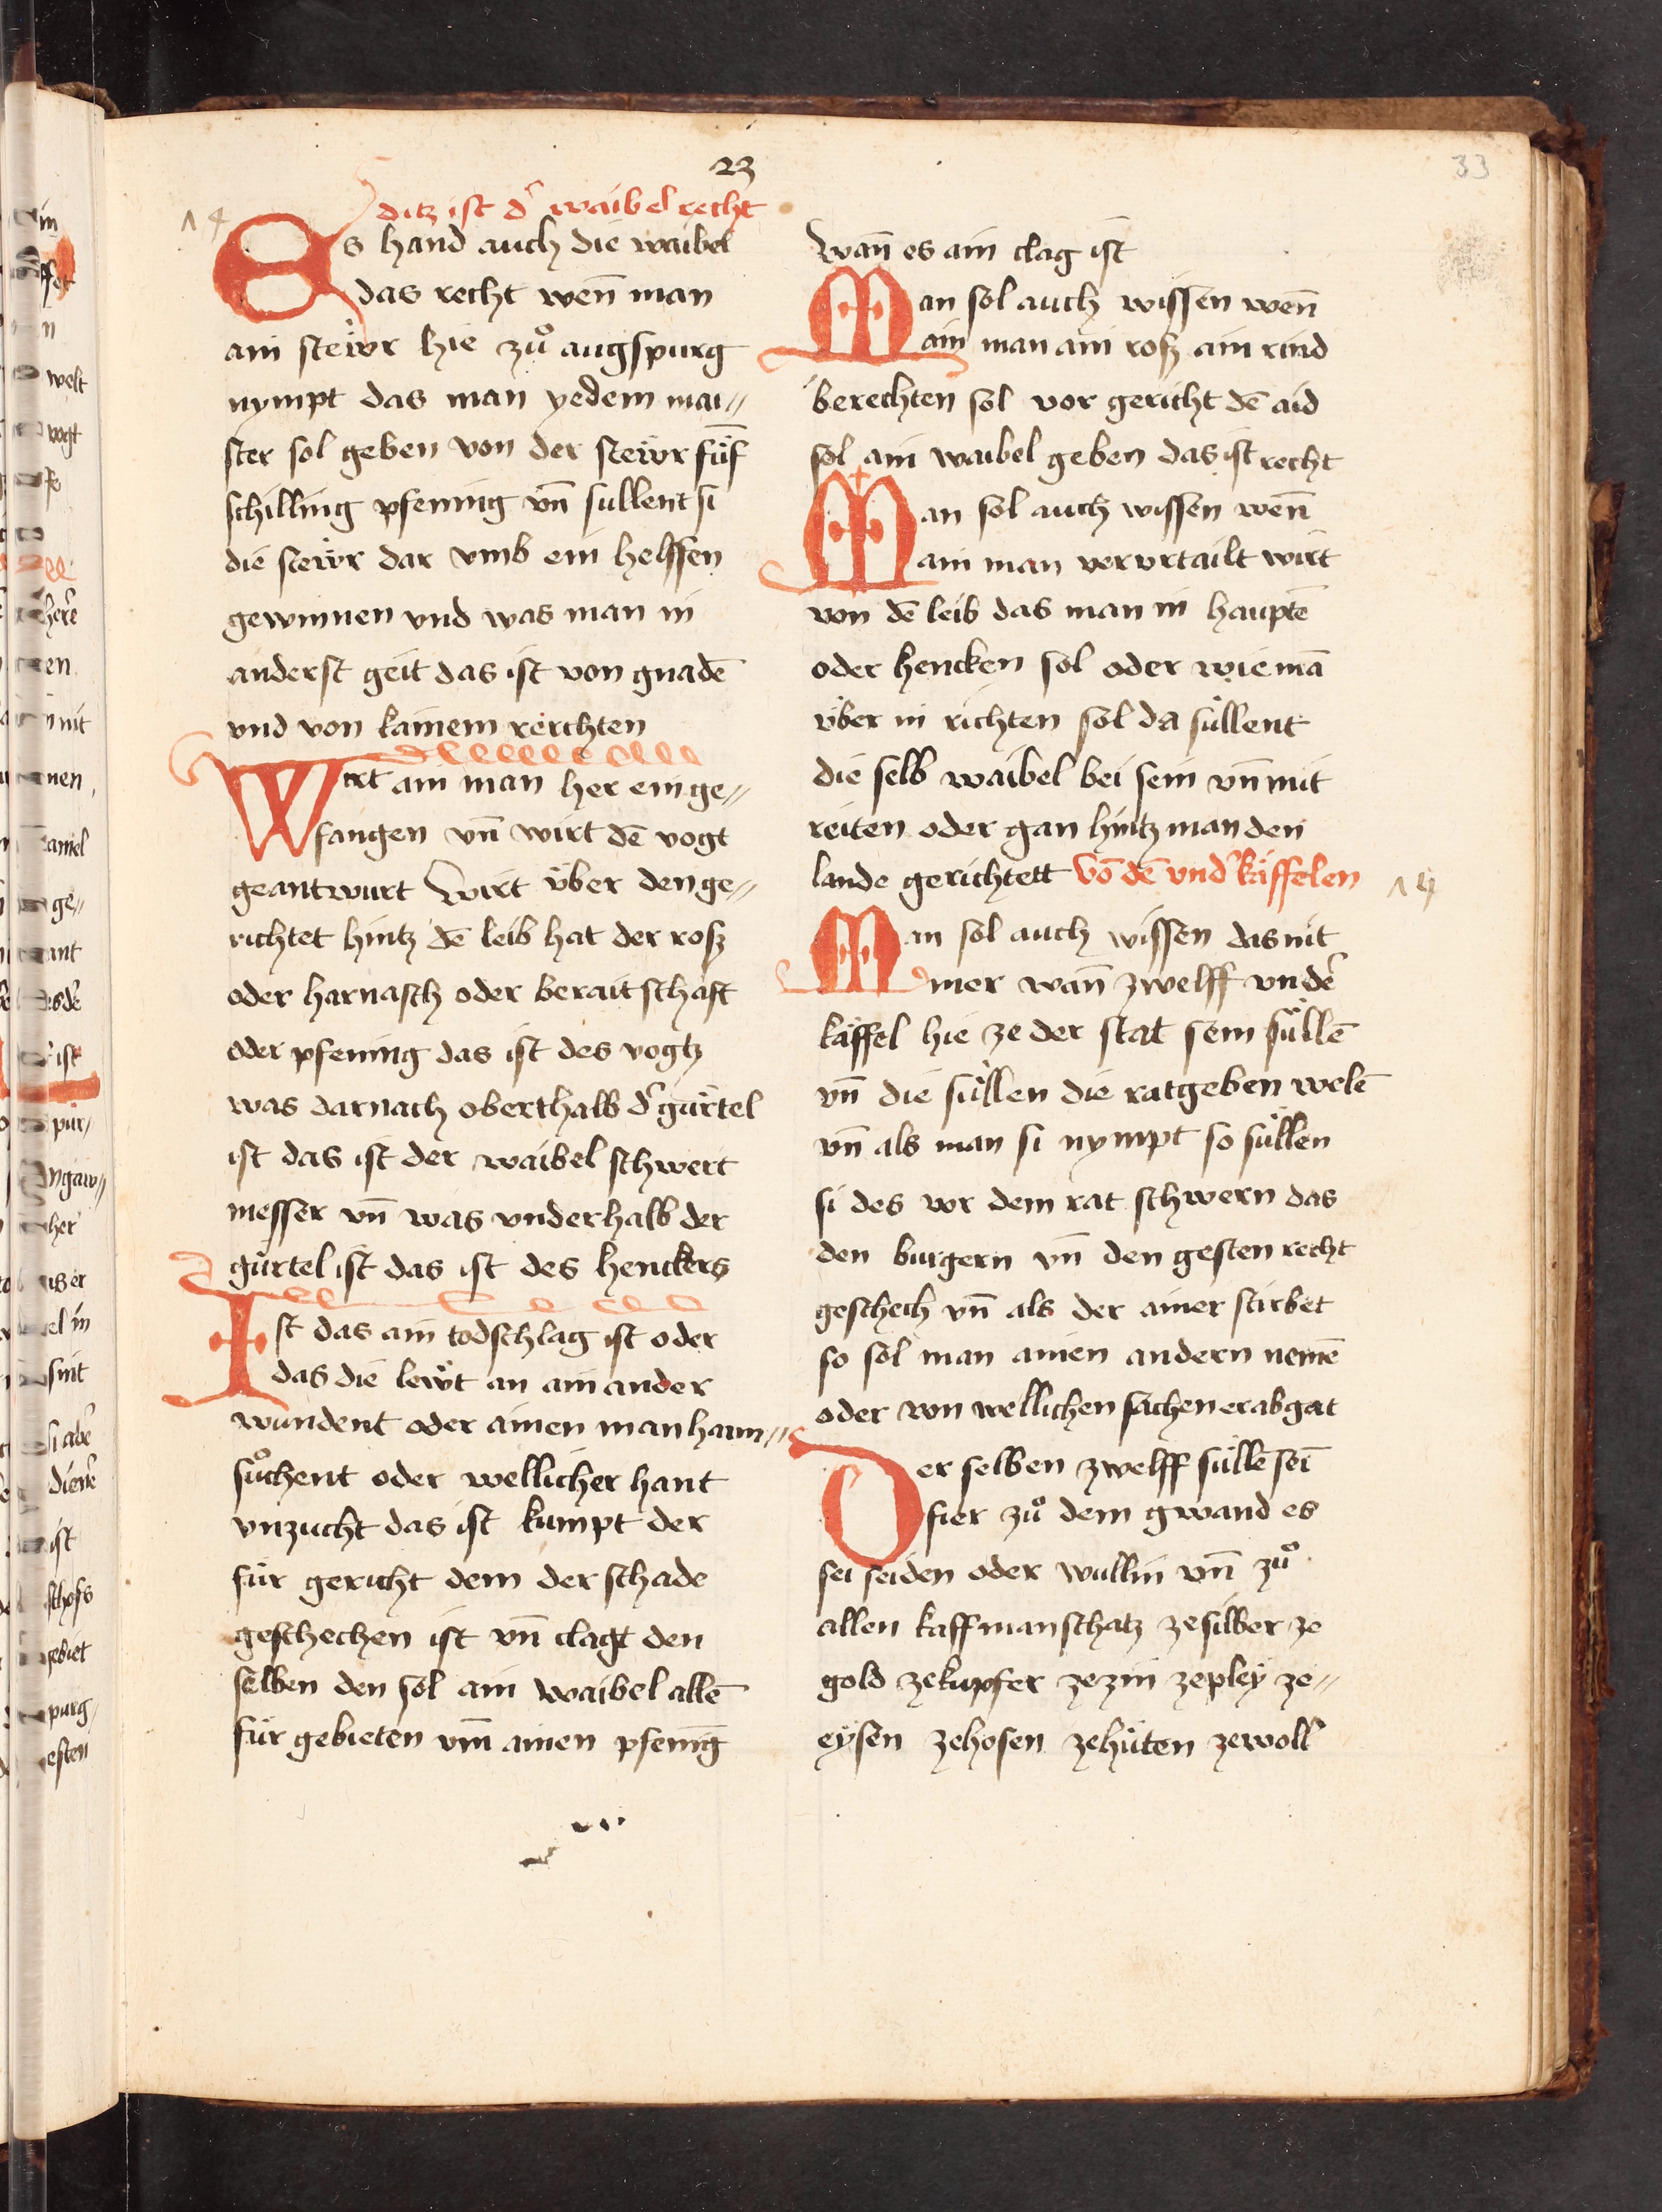 23
33
14
ditz ist d̄ waibel recht
Es hand auch die waibel
das recht wen̄ man
ain steẅr hie zů augspurg
nympt das man yedem mai⸗
ster sol geben von der steẅr füf̄
schilling pfening vn̄ sullent si
die steẅr dar vmb ein helffen
gewinnen vnd was man in
anderst geit das ist von gnadē
vnd von kainem rerchten
Wirt ain man her ein ge⸗
fangen vn̄ wirt dē vogt
geantwurt Wirt über den ge⸗
richtet hintz dē leib hat der rosz
oder harnasch oder berait schaft
oder pfening das ist des vogtz
was darnach oberthalb d̄ gürtel
ist das ist der waibel schwert
messer vn̄ was vnderhalb der
gürtel ist das ist des henckers
Ist das ain todschlag ist oder
das die leẅt an ain ander
wundent oder ainen man haim⸗
sůchent oder wellicher hant
vnzucht das ist kumpt der
für gericht dem der schade
geschechen ist vn̄ clagt den
selben den sol ain waibel allē
für gebieten vm̄ ainen pfenīg
wan̄ es ain clag ist
Man sol auch wissen wen̄
ain man ain rosz ain rind
berechten sol vor gericht dē aid
sol ain waibel geben das ist recht
Man sol auch wissen wen̄
ain man ververtailt wirt
von dē leib das man in hauptē
oder hencken sol oder wie mā
über in richten sol da süllent
die selb waibel bei sein vn̄ mit
reiten oder gan hintz man den
lande gerichtett Vō dē vnd̄ käffelen
15
Man sol auch wissen das nit
mer wan̄ zwelff vndē
käffel hie ze der stat sein süllē
vn̄ die süllen die ratgeben welē
vn̄ als man si nympt so süllen
si des vor dem rat schwern das
den burgern vn̄ den gesten recht
geschech vn̄ als der ainer stirbet
so sol man ainen andern nemē
oder von wellichen sachen er abgat
Der selben zwelff süllē seī
fier zů dem gwand es
sei seiden oder wullin vn̄ zů
allen kaffmanschatz ze silber ze
gold ze kupfer ze zin ze pleÿ ze⸗
eÿsen ze hosen ze hüten ze woll